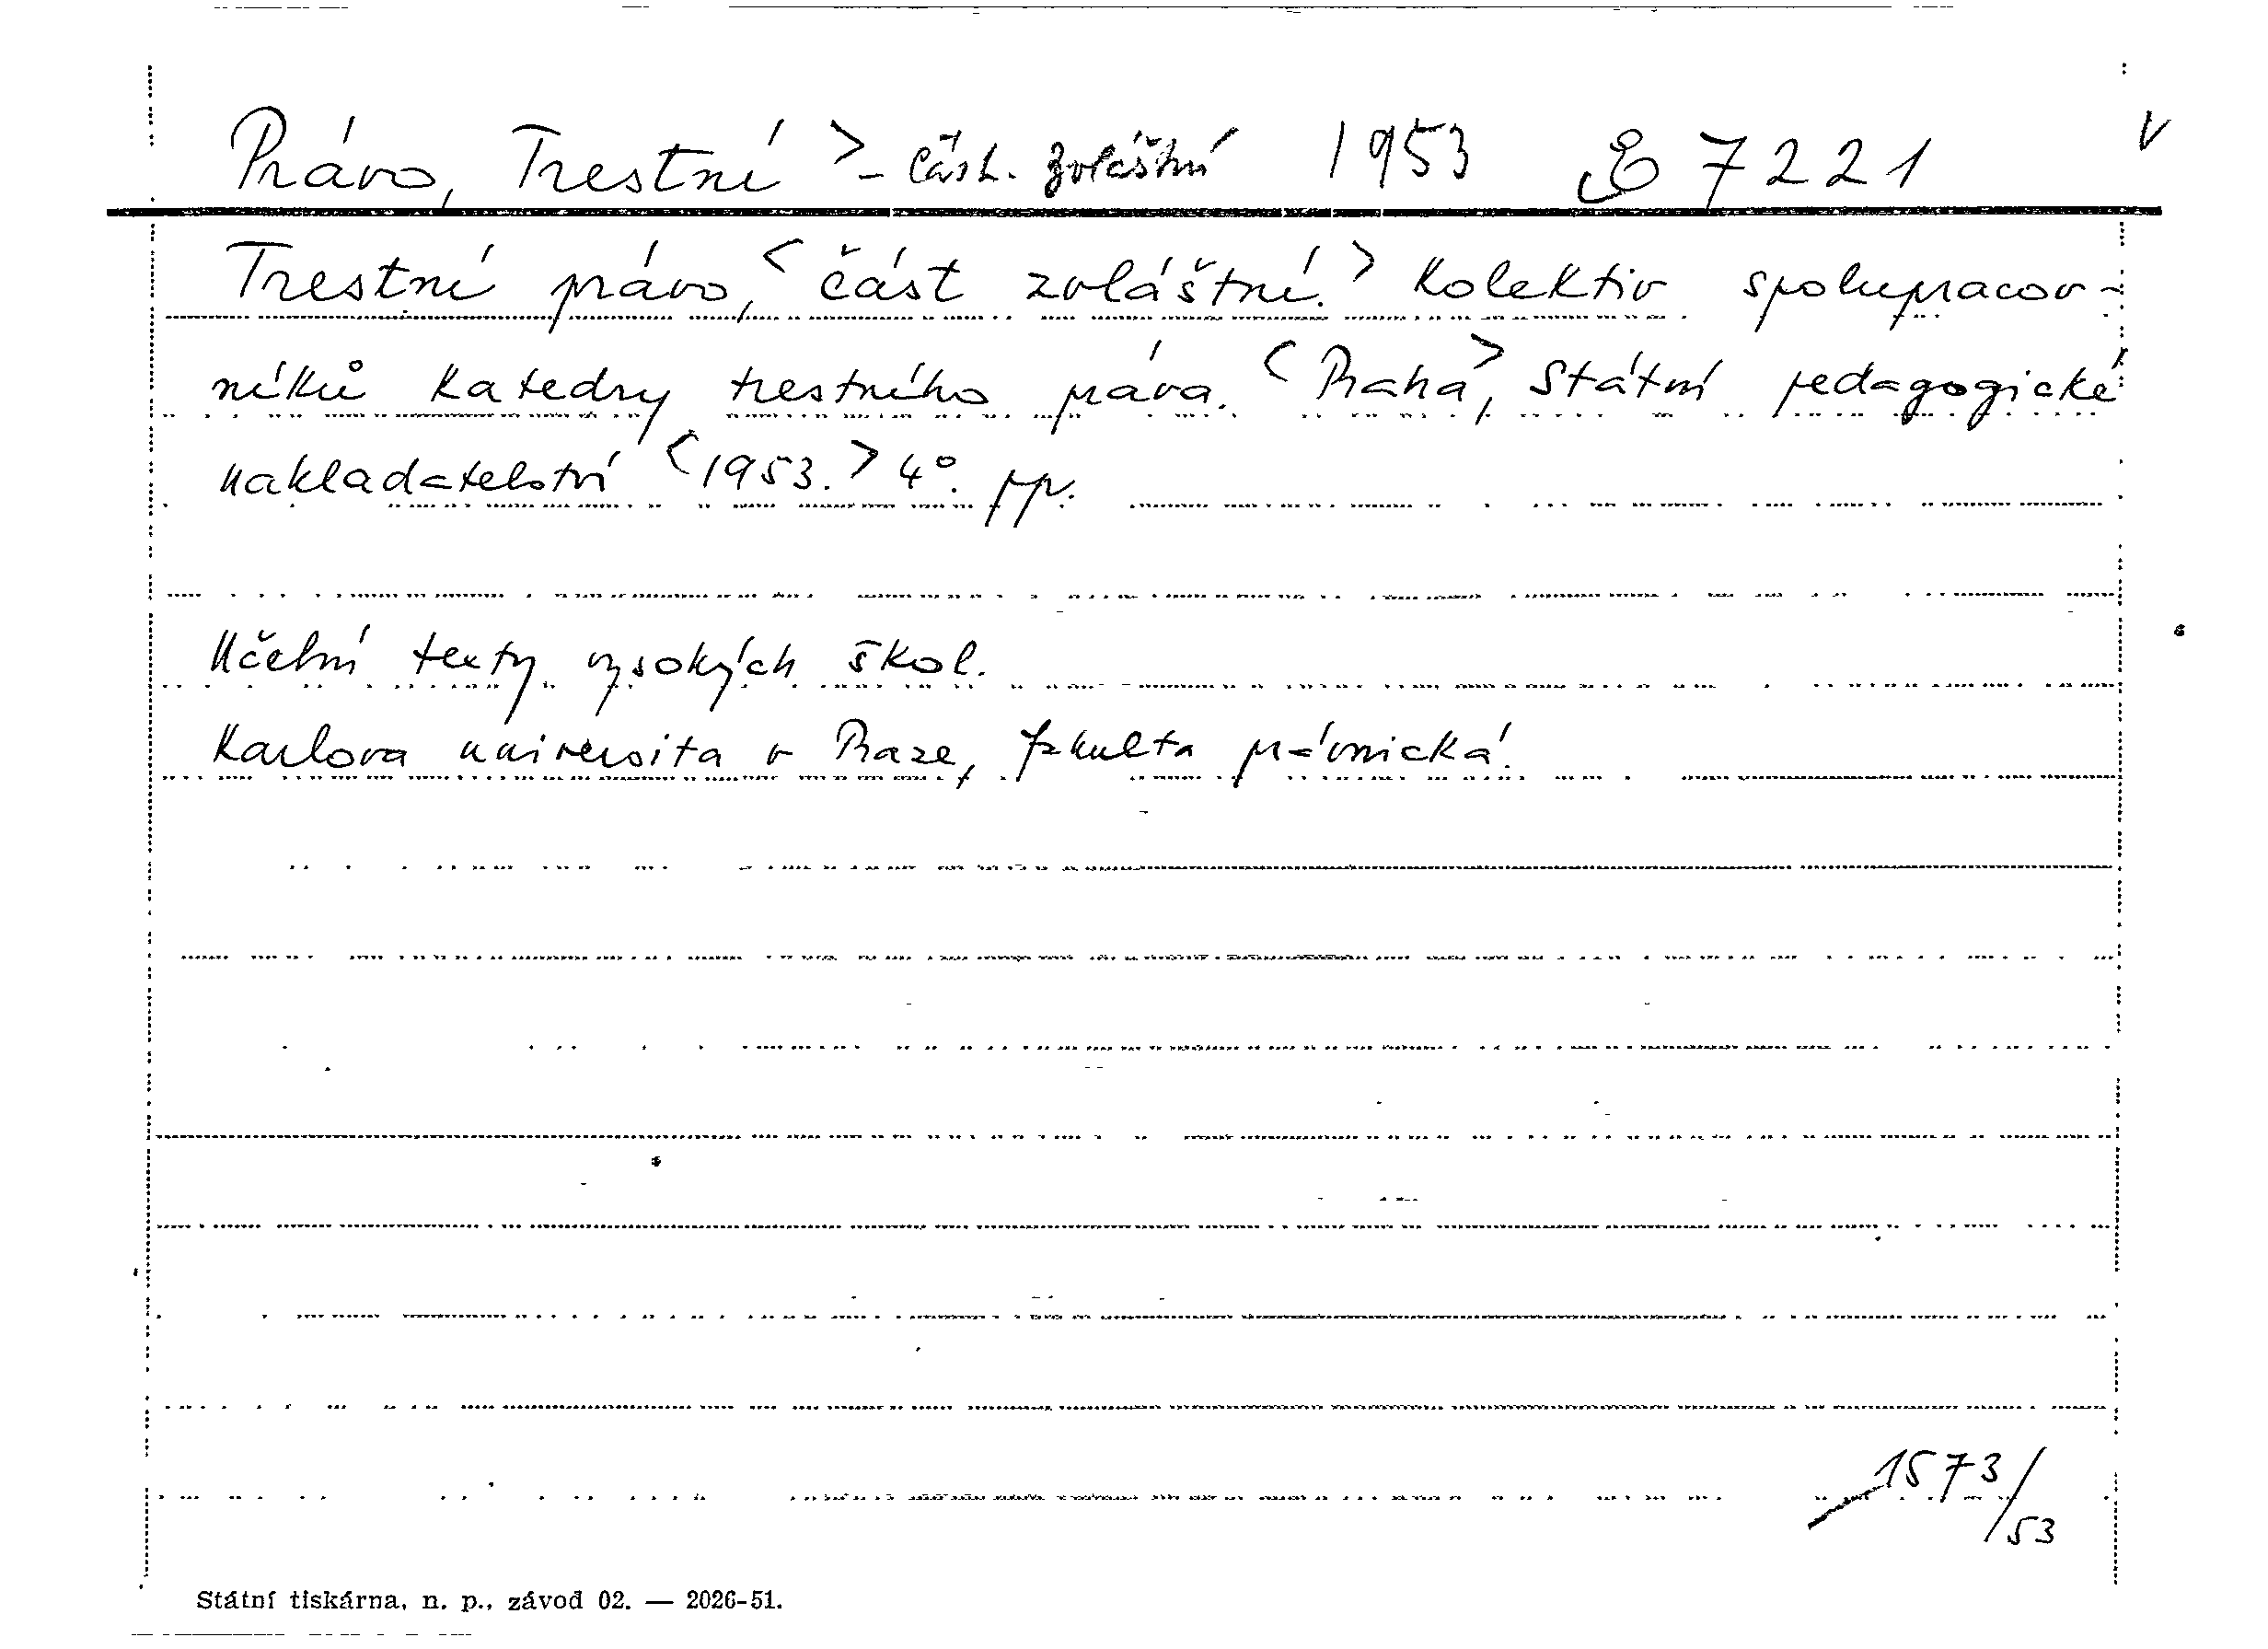 Právo, Trestní > – část. zvláštní 1953 E 7221 V
Trestní právo, < část zvláštní. > Kolektiv spolupracov-
níků katedry trestního práva. < Praha >, Státní pedagogické
nakladatelství < 1953. > 4°. pp.
Učební texty vysokých škol.
Karlova universita v Praze, fakulta právnická.
1573/53
Státní tiskárna, n. p., závod 02. — 2026-51.